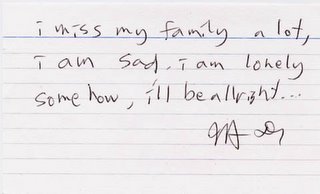 i miss my family a lot,
i am sad. i am lonely
some how, i'll be allright...